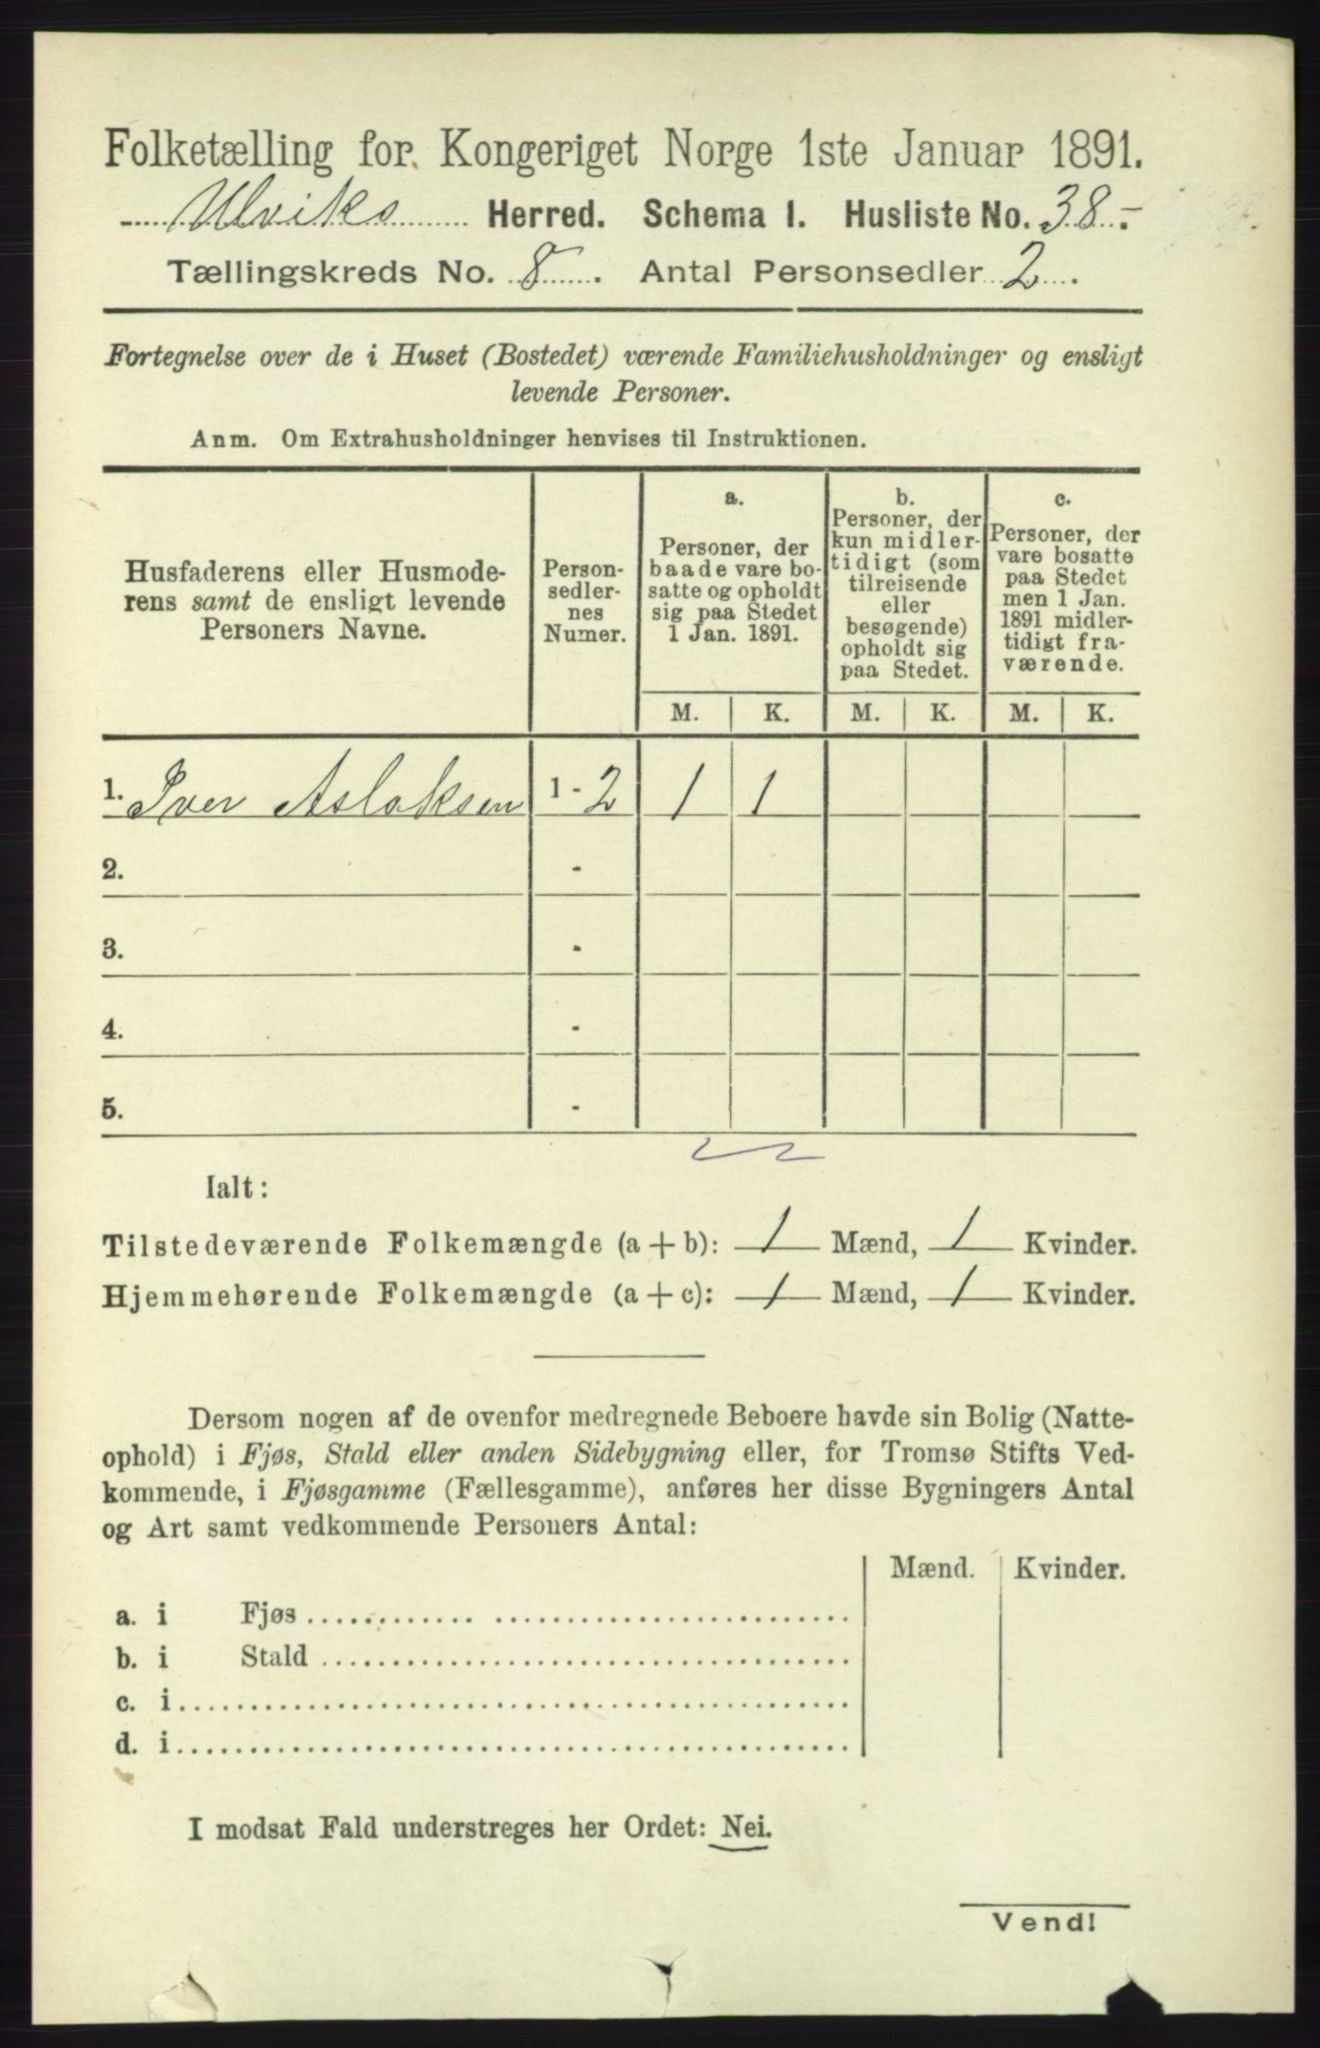 Folketælling for Kongeriget Norge 1ste Januar 1891.
Ulviks Herred. Schema I. Husliste No. 38.-
Tællingskreds No. 8. Antal Personsedler 2.
Fortegnelse over de i Huset (Bostedet) værende Familiehusholdninger og ensligt
levende Personer.
Anm. Om Extrahusholdninger henvises til Instruktionen.
Husfaderens eller Husmode-
rens samt de ensligt levende
Personers Navne.
Person-
sedler-
nes
Numer.
a.
Personer, der
baade vare bo-
satte og opholdt
sig paa Stedet
1 Jan. 1891.
b.
Personer, der
kun midler-
tidigt (som
tilreisende
eller
besøgende)
opholdt sig
paa Stedet.
c.
Personer, der
vare bosatte
paa Stedet
men 1 Jan.
1891 midler-
tidigt fra-
værende.
M. K. M. K. M. K.
1. Iver Aslaksen 1 - 2 1 1
2. -
3. -
4. -
5. -
Ialt:
Tilstedeværende Folkemængde (a + b): 1 Mænd, 1 Kvinder.
Hjemmehørende Folkemængde (a + c): 1 Mænd, 1 Kvinder.
Dersom nogen af de ovenfor medregnede Beboere havde sin Bolig (Natte-
ophold) i Fjøs, Stald eller anden Sidebygning eller, for Tromsø Stifts Ved-
kommende, i Fjøsgamme (Fællesgamme), anføres her disse Bygningers Antal
og Art samt vedkommende Personers Antal:
Mænd. Kvinder.
a. i Fjøs
b. i Stald
c. i
d. i
I modsat Fald understreges her Ordet: Nei.
Vend!